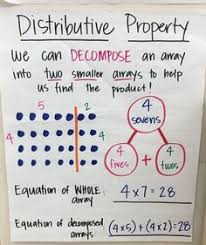 Distributive Property
We can DECOMPOSE an array
into two smaller arrays to help
us find the product!
5 2
4 4
4 sevens
4 fives + 4 twos
Equation of WHOLE array: 4x7=28
Equation of decomposed arrays: (4x5)+(4x2)=28